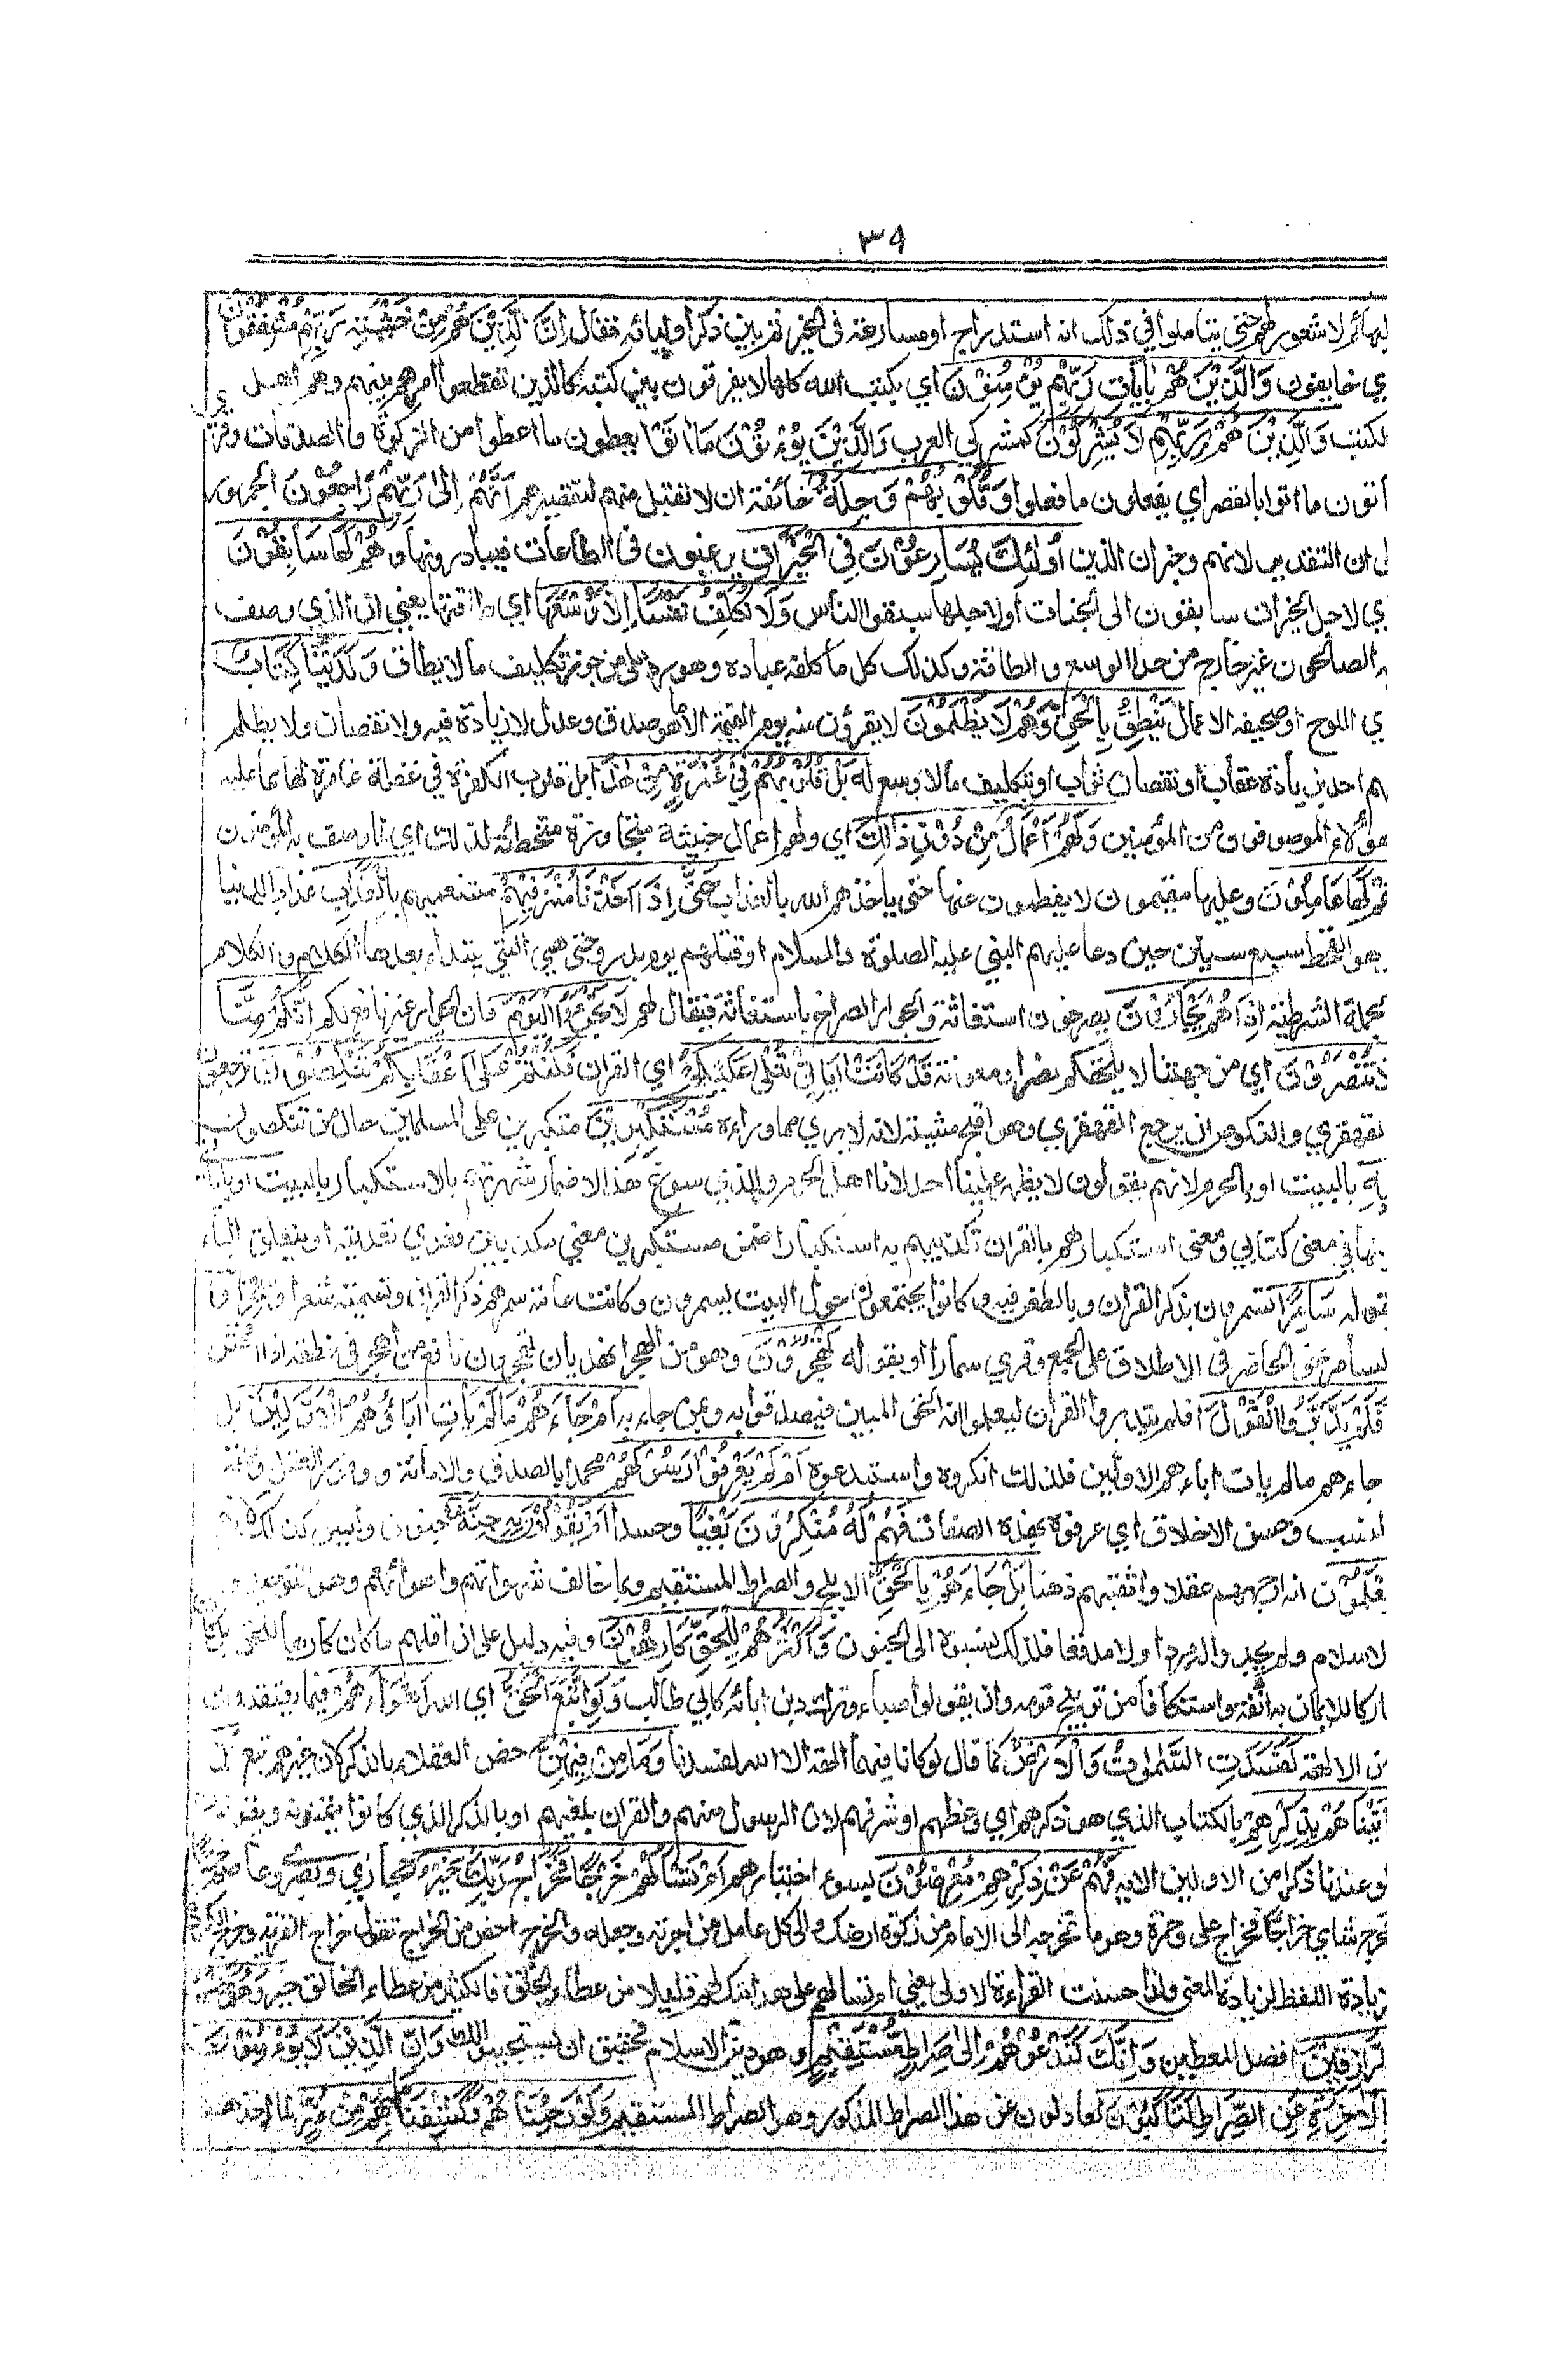 ٣٩
لبهائم لا شعور لهم حتى يتاملوا في ذلك انه استدراج او مسارعة في الخير ثم بين ذكر اوليائه فقال اِنَّ الَّذِيْنَ هُمْ مِّنْ خَشْيَةِ رَبِّهِمْ مُّشْفِقُوْنَ
ي خايفون وَالَّذِيْنَ هُمْ بِاٰيَاتِ رَبِّهِمْ يُؤْمِنُوْنَ اي بكتب الله كلها لا يفرقون بين كتبه كالذين تقطعوا امرهم بينهم وهم اهل
لكتب وَالَّذِيْنَ هُمْ بِرَبِّهِمْ لَا يُشْرِكُوْنَ كمشركي العرب وَالَّذِيْنَ يُؤْتُوْنَ مَا اٰتَوْا يعطون ما اعطوا من الزكوة والصدقات وقرئ
اتون ما اتوا بالقصر اي يفعلون ما فعلوا وَقُلُوْبُهُمْ وَجِلَةٌ خائفة ان لا تقبل منهم لتقصيرهم اَنَّهُمْ اِلٰى رَبِّهِمْ رَاجِعُوْنَ الجمهور
ل ان التقدير لانهم وخبر ان الذين اُولٰئِكَ يُسَارِعُوْنَ فِي الْخَيْرَاتِ يرغبون في الطاعات فيبادرونها وَهُمْ لَهَا سَابِقُوْنَ
ي لاجل الخيرات سابقون الى الجنات او لاجلها سبقوا الناس وَلَا نُكَلِّفُ نَفْسًا اِلَّا وُسْعَهَا اي طاقتها يعني ان الذي وصف
به الصالحون غير خارج من حد الوسع والطاقة وكذلك كل ما كلفه عباده وهو رد على من جوز تكليف ما لا يطاق وَلَدَيْنَا كِتَابٌ
ي اللوح او صحيفة الاعمال يَنْطِقُ بِالْحَقِّ وَهُمْ لَا يُظْلَمُوْنَ لا يقرؤن منه يوم القيمة الا ما هو صدق وعدل لا زيادة فيه ولا نقصان ولا يظلم
هم احد بزيادة عقاب او نقصان ثواب او بتكليف ما لا وسع له بَلْ قُلُوْبُهُمْ فِيْ غَمْرَةٍ مِّنْ هٰذَا بل قلوب الكفرة في غفلة غامرة لها مما عليه
هؤلاء الموصوفون من المؤمنين وَلَهُمْ اَعْمَالٌ مِّنْ دُوْنِ ذٰلِكَ اي ولهم اعمال خبيثة متجاوزة متخطئة لذلك اي لما وصف به المؤمنون
هُمْ لَهَا عَامِلُوْنَ وعليها مقيمون لا يفطمون عنها حتى ياخذهم الله بالعذاب حَتّٰى اِذَا اَخَذْنَا مُتْرَفِيْهِمْ متنعميهم بِالْعَذَابِ عذاب الدنيا
وهو القحط سبع سنين حين دعا عليهم النبي عليه الصلوة والسلام او قتلهم يوم بدر وحتى هي التي يبتداء بعدها الكلام والكلام
لجملة الشرطية اِذَا هُمْ يَجْاَرُوْنَ يصرخون استغاثة والجوار الصراخ باستغاثة فيقال لهم لَا تَجْاَرُوا الْيَوْمَ فان الجوار غير نافع لكم اِنَّكُمْ مِّنَّا
لَا تُنْصَرُوْنَ اي من جهتنا لا يلحقكم نصر او معونة قَدْ كَانَتْ اٰيَاتِيْ تُتْلٰى عَلَيْكُمْ اي القران فَكُنْتُمْ عَلٰى اَعْقَابِكُمْ تَنْكِصُوْنَ ترجعون
القهقرى والنكوص ان يرجع القهقرى وهو اقبح مشية لانه لا يرى ما وراءه مُسْتَكْبِرِيْنَ متكبرين على المسلمين حال من تنكصون
بِهِ بالبيت او بالحرم لانهم يقولون لا يظهر علينا احد لانا اهل الحرم والذي سوغ هذا الاضمار شهرتهم بالاستكبار بالبيت او باياتي
نها في معنى كتابي ومعنى استكبارهم بالقران تكذيبهم به استكبارا ضمن مستكبرين معنى مكذبين فعدي تعديته او يتعلق الباء
بقوله سَامِرًا تسمرون بذكر القران وبالطعن فيه وكانوا يجتمعون حول البيت يسمرون وكانت عامة سمرهم ذكر القران وتسميته شعرا وسحرا و
لسامر نحو الحاضر في الاطلاق على الجمع وقرئ سمارا او بقوله تَهْجُرُوْنَ وهو من الهجر الهذيان تهجرون نافع من اهجر في منطقه اذا افحش
اَفَلَمْ يَدَّبَّرُوا الْقَوْلَ افلم يتدبروا القران ليعلموا انه الحق المبين فيصدقوا به وبمن جاء به اَمْ جَاءَهُمْ مَّا لَمْ يَاْتِ اٰبَاءَهُمُ الْاَوَّلِيْنَ بل
جاءهم ما لم يات اباءهم الاولين فلذلك انكروه واستبدعوه اَمْ لَمْ يَعْرِفُوْا رَسُوْلَهُمْ محمدا بالصدق والامانة ووفور العقل وصحة
لنسب وحسن الاخلاق اي عرفوه بهذه الصفات فَهُمْ لَهُ مُنْكِرُوْنَ بغيا وحسدا اَمْ يَقُوْلُوْنَ بِهِ جِنَّةٌ جنون وليس كذلك لانهم
يَعْلَمُوْنَ انه ارجحهم عقلا واثقبهم ذهنا بَلْ جَاءَهُمْ بِالْحَقِّ الابلج والصراط المستقيم وبما خالف شهواتهم واهوائهم وهو التوحيد و
لاسلام ولم يجدوا له مردا ولا مدفعا فلذلك نسبوه الى الجنون وَاَكْثَرُهُمْ لِلْحَقِّ كَارِهُوْنَ وفيه دليل على ان اقلهم ما كان كارها للحق بل كان
اركا للايمان به انفة واستنكافا من توبيخ قومه وان يقولوا صباء وترك دين ابائه كابي طالب وَلَوِ اتَّبَعَ الْحَقُّ اي الله اَهْوَاءَهُمْ فيما يعتقدون
ن الالهة لَفَسَدَتِ السَّمٰوٰتُ وَالْاَرْضُ كما قال لو كان فيهما الهة الا الله لفسدتا وَمَنْ فِيْهِنَّ خص العقلاء بالذكر لان غيرهم تبع بَلْ
اَتَيْنَاهُمْ بِذِكْرِهِمْ بالكتاب الذي هو ذكرهم اي وعظهم او شرفهم لان الرسول منهم والقران بلغتهم او بالذكر الذي كانوا يتمنونه ويقولون
لو عندنا ذكرا من الاولين الاية فَهُمْ عَنْ ذِكْرِهِمْ مُّعْرِضُوْنَ بسوء اختيارهم اَمْ تَسْئَلُهُمْ خَرْجًا فَخَرَاجُ رَبِّكَ خَيْرٌ حجازي وبصري وعاصم خرجا
فخرج شامي خراجا فخراج علي وحمزة وهو ما تخرجه الى الامام من زكوة ارضك والى كل عامل من اجرته وجعله والخرج اخص من الخراج تقول خراج القرية وخرج الكردة
زيادة اللفظ لزيادة المعنى ولذا حسنت القراءة الاولى يعني ام تسالهم على هدايتك لهم قليلا من عطاء الخلق فالكثير من عطاء الخالق خير وَهُوَ خَيْرُ
الرَّازِقِيْنَ افضل المعطين وَاِنَّكَ لَتَدْعُوْهُمْ اِلٰى صِرَاطٍ مُّسْتَقِيْمٍ وهو دين الاسلام فحقيق ان يستجيبوا لك وَاِنَّ الَّذِيْنَ لَا يُؤْمِنُوْنَ
بِالْاٰخِرَةِ عَنِ الصِّرَاطِ لَنَاكِبُوْنَ لعادلون عن هذا الصراط المذكور وهو الصراط المستقيم وَلَوْ رَحِمْنَاهُمْ وَكَشَفْنَا مَا بِهِمْ مِّنْ ضُرٍّ لما اخذهم